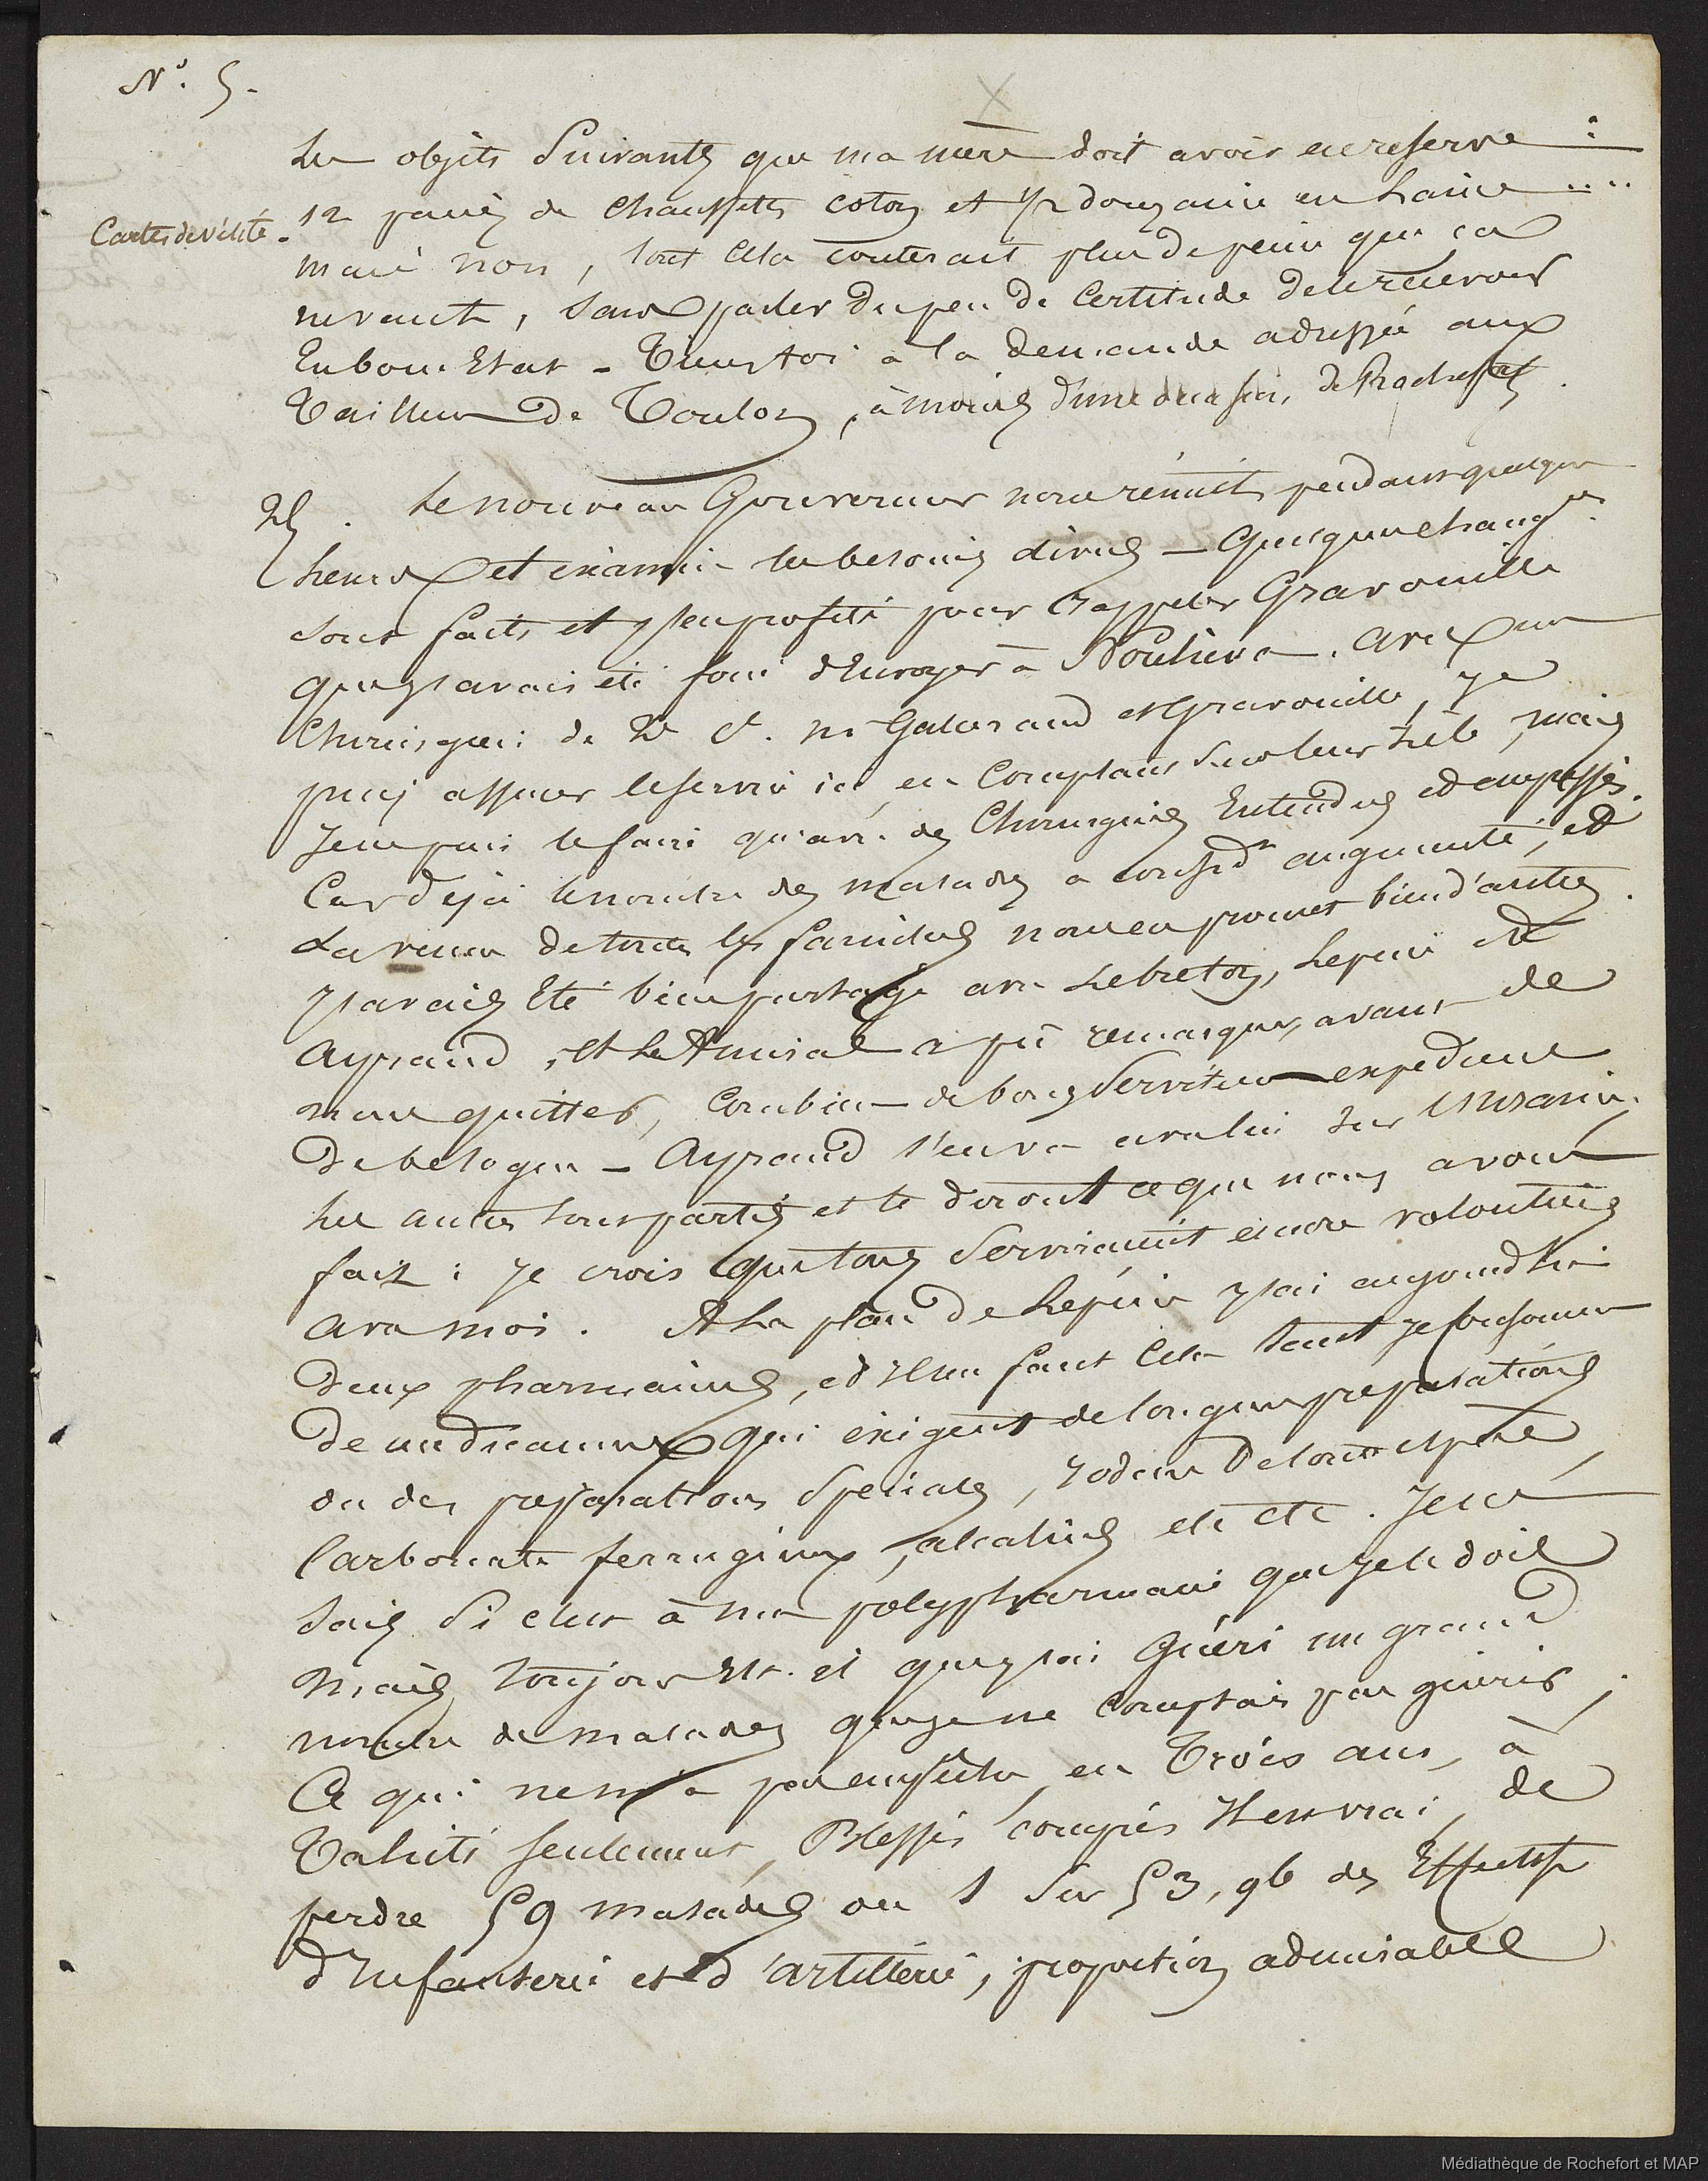 N°. 5.
Les objets suivants que ma mère doit avoir en reserve :
Cartes de visite -
12 paires de chaussettes coton et 1/2 douzaine en laine ....
mais non, tout cela couterait plus de peine que ça
ne vaut, sans parler du peu de certitude de le recevoir
En bon Etat - Tiens toi à la demande adressée aux
Tailleurs de Toulon, à moins d'une occasion de Rochefort.
25. Le nouveau Gouverneur nous réunit pendant quelques
heures et examine les besoins divers - Quelques changts
sont faits et j'en profite pour rappeler Gravouille
que j'avais été forcé d'Envoyer à Noukiva. avec un
Chirurgien de 2e cl. Mr Galleraud et Gravouille, je
puis assurer le service ici, en comptant sur leur zèle, mais
je ne puis le faire qu'avec des Chirurgiens Entendus et empressés.
Car déjà le nombre des malades a considt augmenté, et
La venue de toutes les familles nous en promet bien d'autres.
J'avais Eté bien partagé avec Lebreton, Lepine et
Ayraud, et L'Amiral a pû remarquer, avant de
nous quitter, combien de bons Serviteurs expedient
de besogne - Ayraud s'en va avec lui sur L'Uranie.
Les autres sont partis et te diront ce que nous avons
fait : je crois que tous serviraient encore volontiers
avec moi. A La place de Lepine j'ai aujourd'hui
deux pharmaciens, et il me faut cela tant je consomme
de médicaments qui exigent de longues preparations
ou des preparations spéciales, iodure de toute espèce,
Carbonate ferrugineux, alcalins etc etc. Je ne
sais si c'est à ma polypharmacie que je le dois
mais toujours Est-il que j'ai guéri un grand
nombre de malades que je ne comptais pas guérir ;
Ce qui ne m'a pas empêché, en Trois ans, à
Tahiti seulement, Blessés compris il est vrai, de
perdre 59 malades ou 1 sur 53,96 des Effectifs
d'Infanterie et d'artillerie, proportion admirable
Médiathèque de Rochefort et MAP